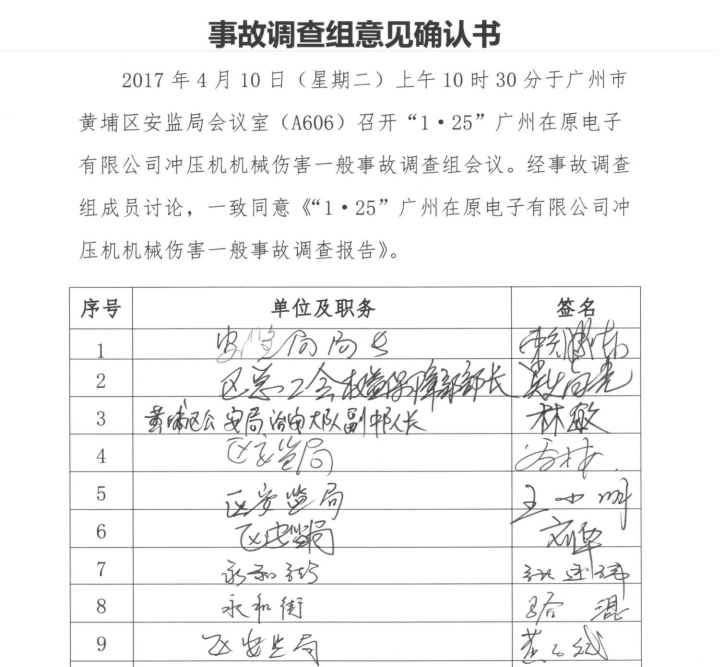 事故调查组意见确认书
2017年4月10日（星期二）上午10时30分于广州市
黄埔区安监局会议室（A606）召开“1·25”广州在原电子
有限公司冲压机机械伤害一般事故调查组会议。经事故调查
组成员讨论，一致同意《“1·25”广州在原电子有限公司冲
压机机械伤害一般事故调查报告》。
序号 单位及职务 签名
1 安监局局长
2 区总工会权益保障部部长
3 黄埔区公安局治安大队副中队长 林敏
4 区安监局
5 区安监局 王小明
6 区安监局
7 永和街
8 永和街
9 区安监局